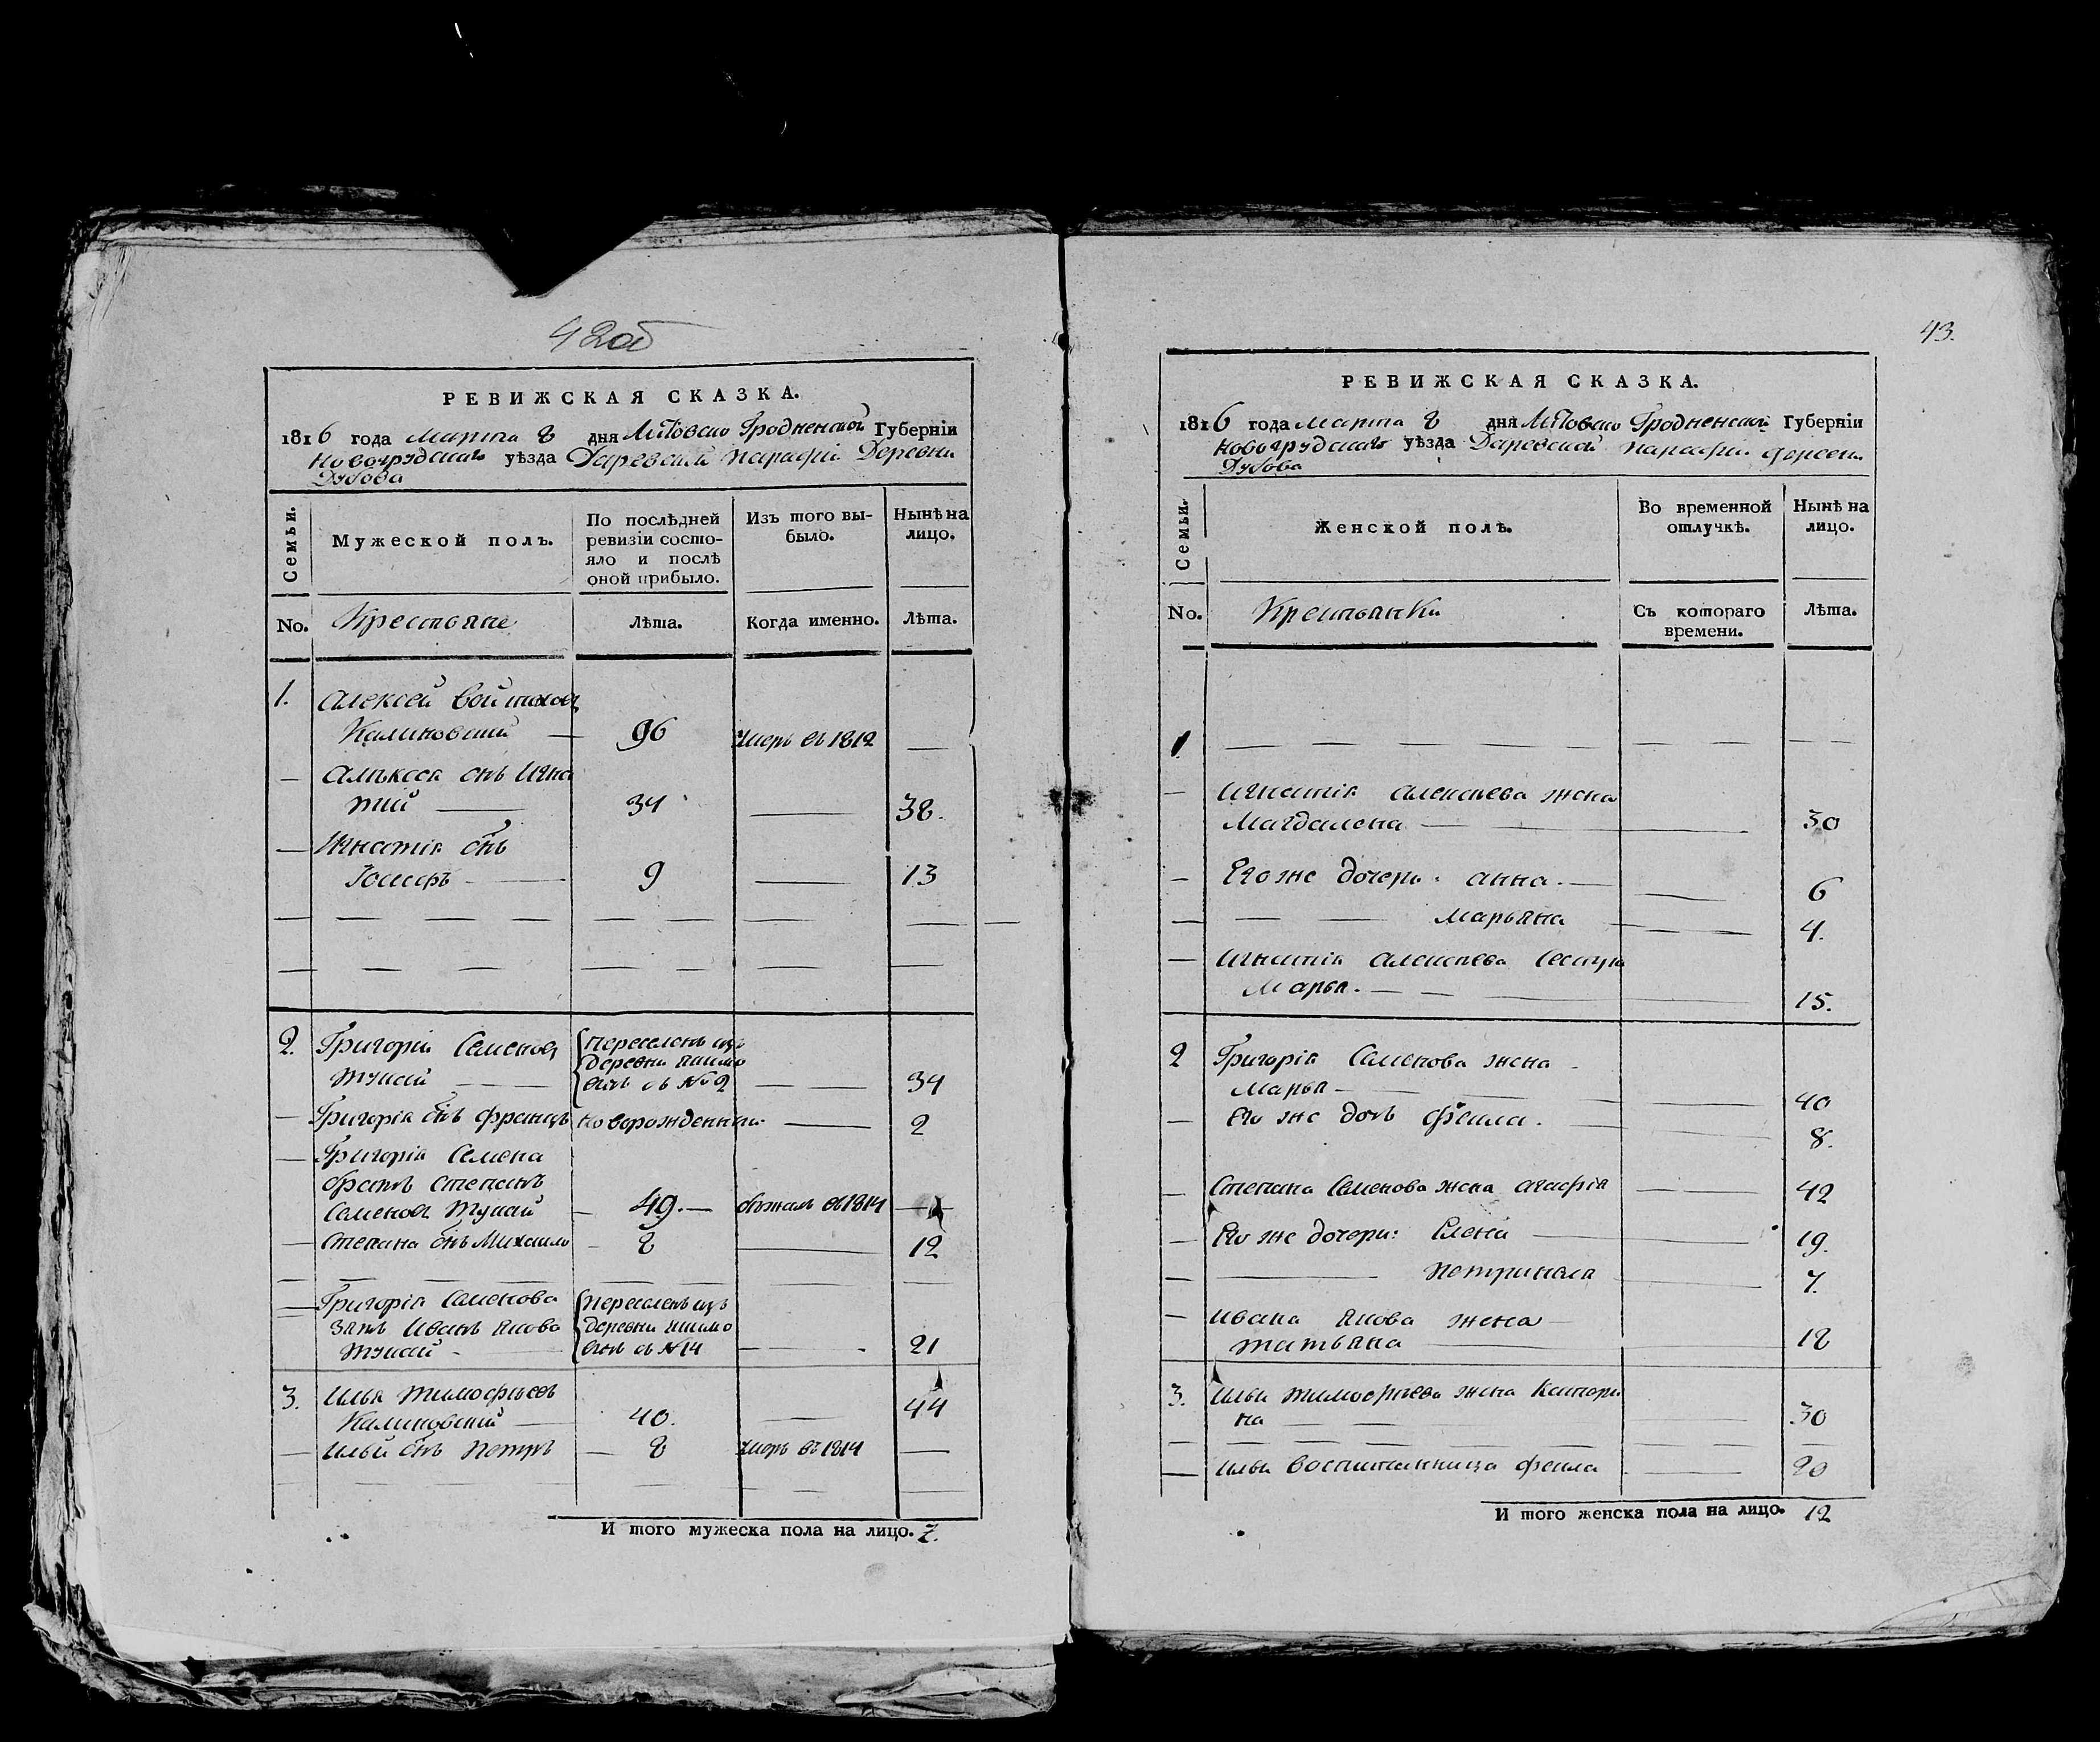 42об
РЕВИЖСКАЯ СКАЗКА.
1816 года Марта 8 дня Литовско Гродненской Губерніи
Новогрудскаго уѣзда Даревской парафіи Деревни
Дубова
Семьи.
Мужеской полъ.
По послѣдней
ревизіи состо-
яло и послѣ
оной прибыло.
Изъ того вы-
было.
Нынѣ на
лицо.
No. Крестьяне Лѣта. Когда именно. Лѣта.
1. Алексей Войтехов
Калиновский — 96 умеръ въ 1812 —
— Алексея снъ Игна
тий — 34 — 38.
— Игнатія снъ
Іосифъ — 9 — 13
2. Григорій Семенов переселенъ изъ
Тукай — деревни
съ No 2 — 34
— Григорія снъ Францъ новорожденный — 2
— Григорія Семена
братъ Степанъ
Семенов Тукай — 49. — бѣжалъ въ 1814 —
— Степана снъ Михайло — 8 — 12
— Григорія Семенова переселенъ изъ
зять Иванъ Якова деревни
Тукай — съ N 14 — 21
3. Илья Тимофѣевъ
Калиновский — 40. — 44
— Ильи снъ Петръ — 8 умеръ въ 1814 —
И того мужеска пола на лицо. 7.
43.
РЕВИЖСКАЯ СКАЗКА.
1816 года Марта 8 дня Литовско Гродненской Губерніи
Новогрудскаго уѣзда Даревской парафіи деревни
Дубова
Семьи.
Женской полъ.
Во временной
отлучкѣ.
Нынѣ на
лицо.
No. Крестьянки Съ котораго
времени. Лѣта.
1.
— Игнатія Алексѣева жена
Магдалена — 30
— Его же дочери: Анна. — 6
— Марьяна 4.
— Игнатія Алексѣева сестра
Марья. — 15.
2 Григорія Семенова жена
Марья — 40
— Его же дочь Фекла. 8.
— Степана Семенова жена Агафія — 42
— Его же дочери: Елена — 19.
— Петрунеля 7.
— Ивана Якова жена —
Татьяна — 18
3. Ильи Тимофѣева жена Катери
на — 30
— Ильи воспитанница Фекла — 20
И того женска пола на лицо. 12